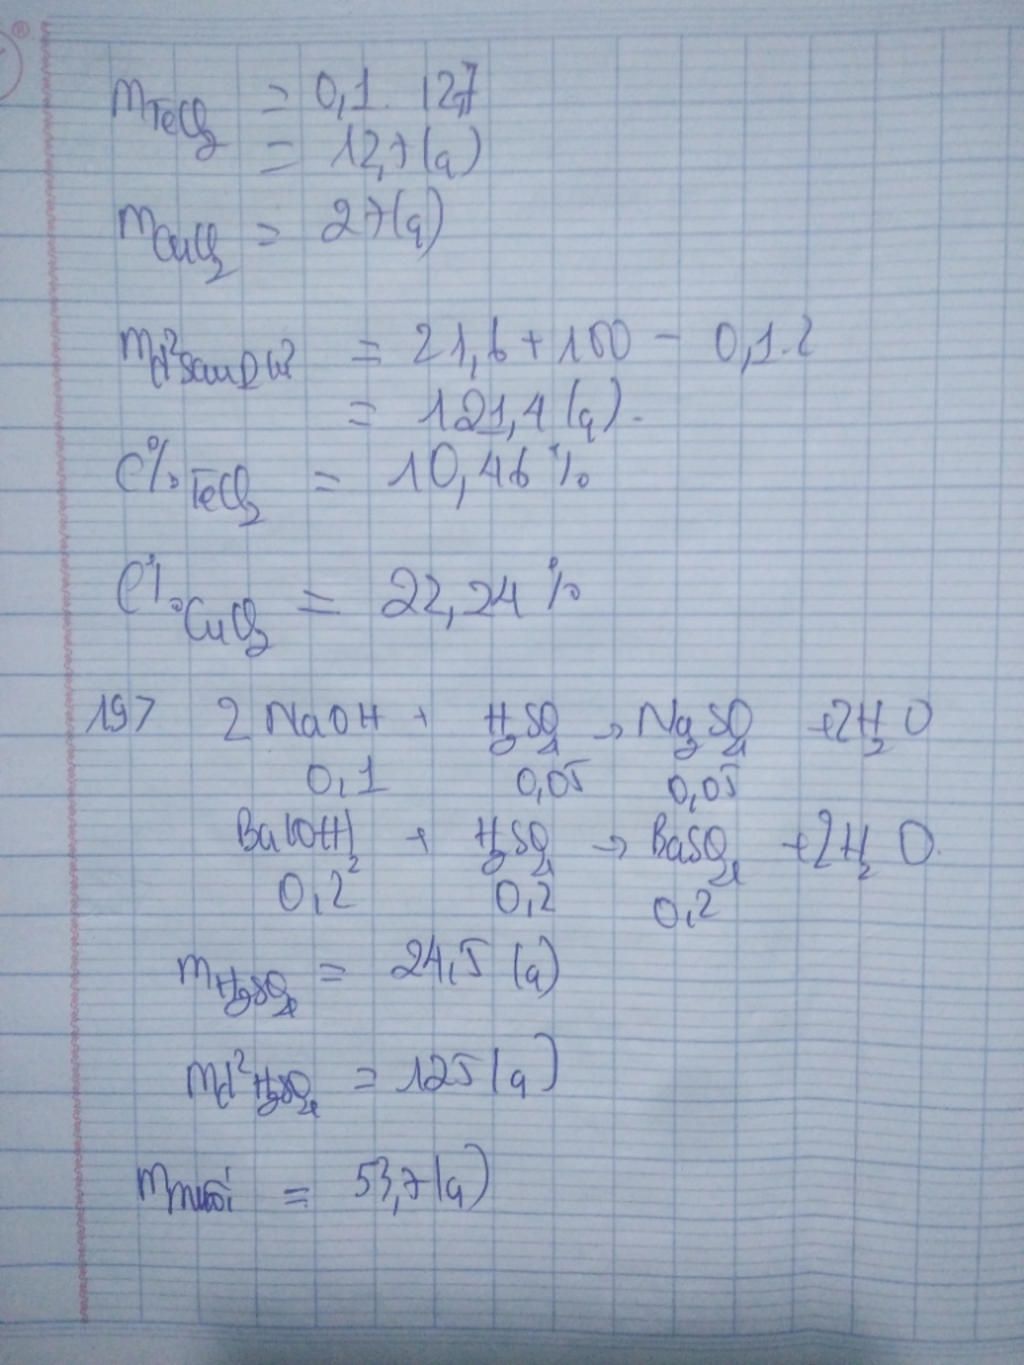 mFeCl2 = 0,1. 127
= 12,7(g)
mCuCl2 = 27(g)
md² sau PƯ = 21,6 + 100 - 0,1.2
= 121,4(g).
C%FeCl2 = 10,46%
C%CuCl2 = 22,24%
19> 2 NaOH + H2SO4 → Na2SO4 + 2H2O
0,1 0,05 0,05
Ba(OH)2 + H2SO4 → BaSO4 + 2H2O.
0,2 0,2 0,2
mH2SO4 = 24,5 (g)
md² H2SO4 = 125(g)
mmuối = 53,7(g)